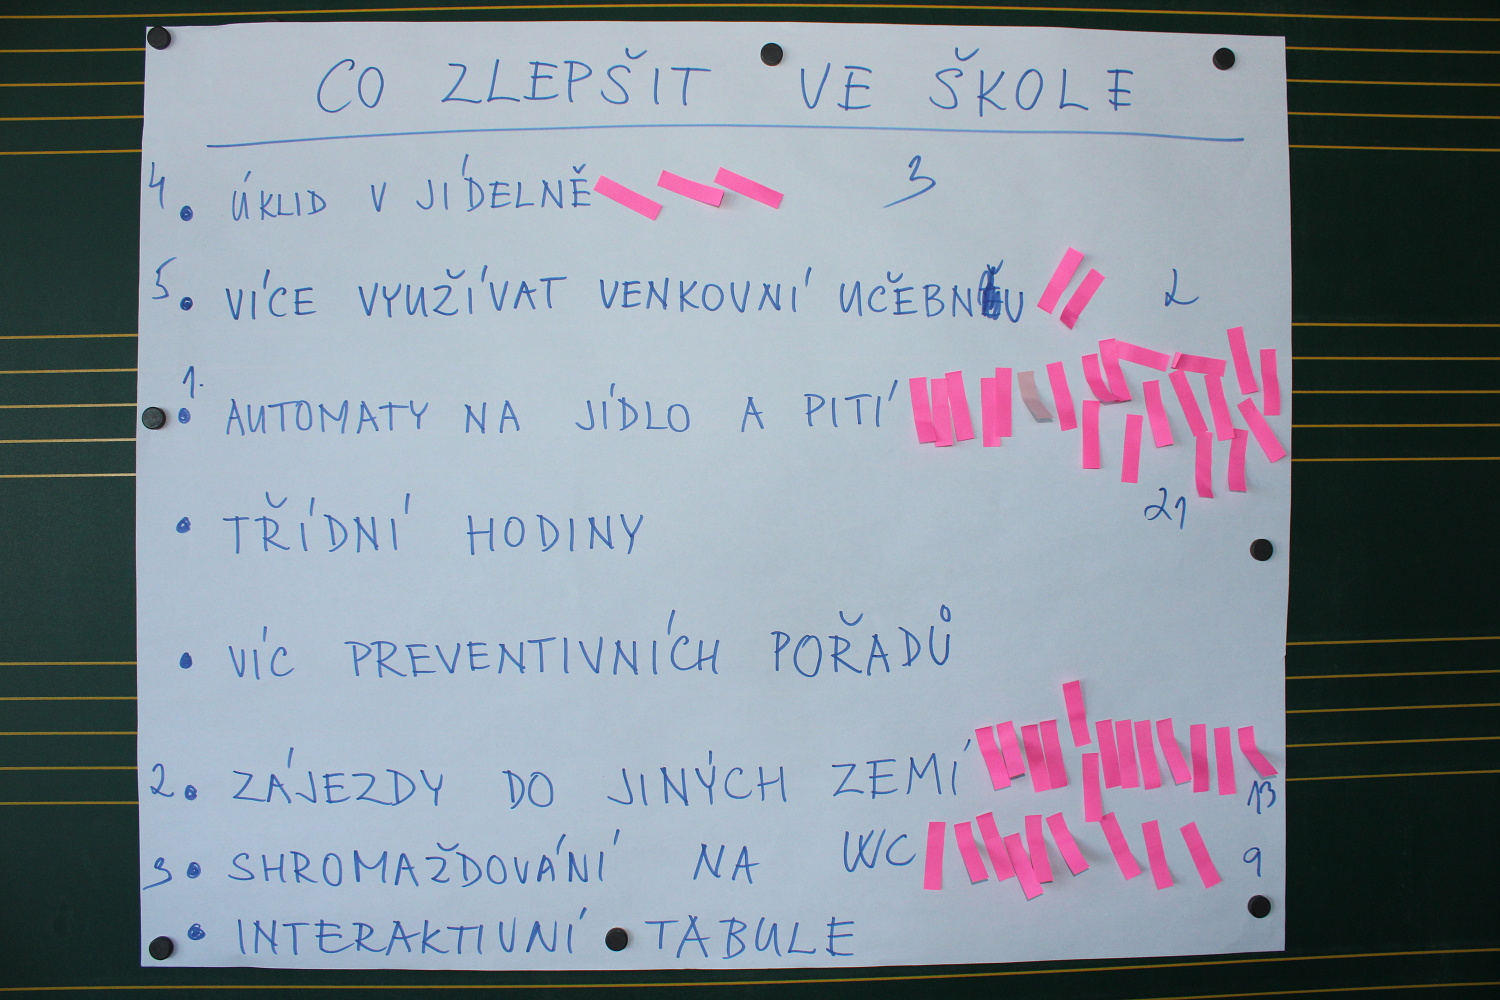 CO ZLEPŠIT VE ŠKOLE
4. • ÚKLID V JÍDELNĚ 3
5. • VÍCE VYUŽÍVAT VENKOVNÍ UČEBNU 2
1. • AUTOMATY NA JÍDLO A PITÍ
21
• TŘÍDNÍ HODINY
• VÍC PREVENTIVNÍCH POŘADŮ
2. • ZÁJEZDY DO JINÝCH ZEMÍ 13
3 • SHROMAŽDOVÁNÍ NA WC 9
• INTERAKTIVNÍ TABULE